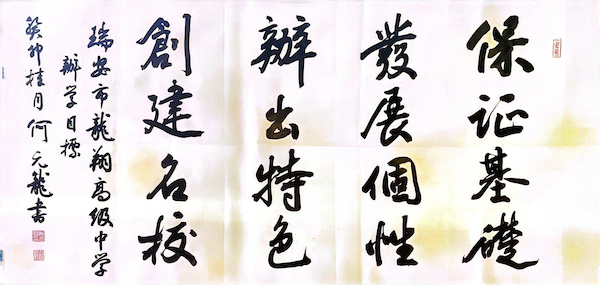 保证基礎
發展個性
辦出特色
創建名校
瑞安市龍翔高级中学
辦学目標
癸卯桂月何元龍書